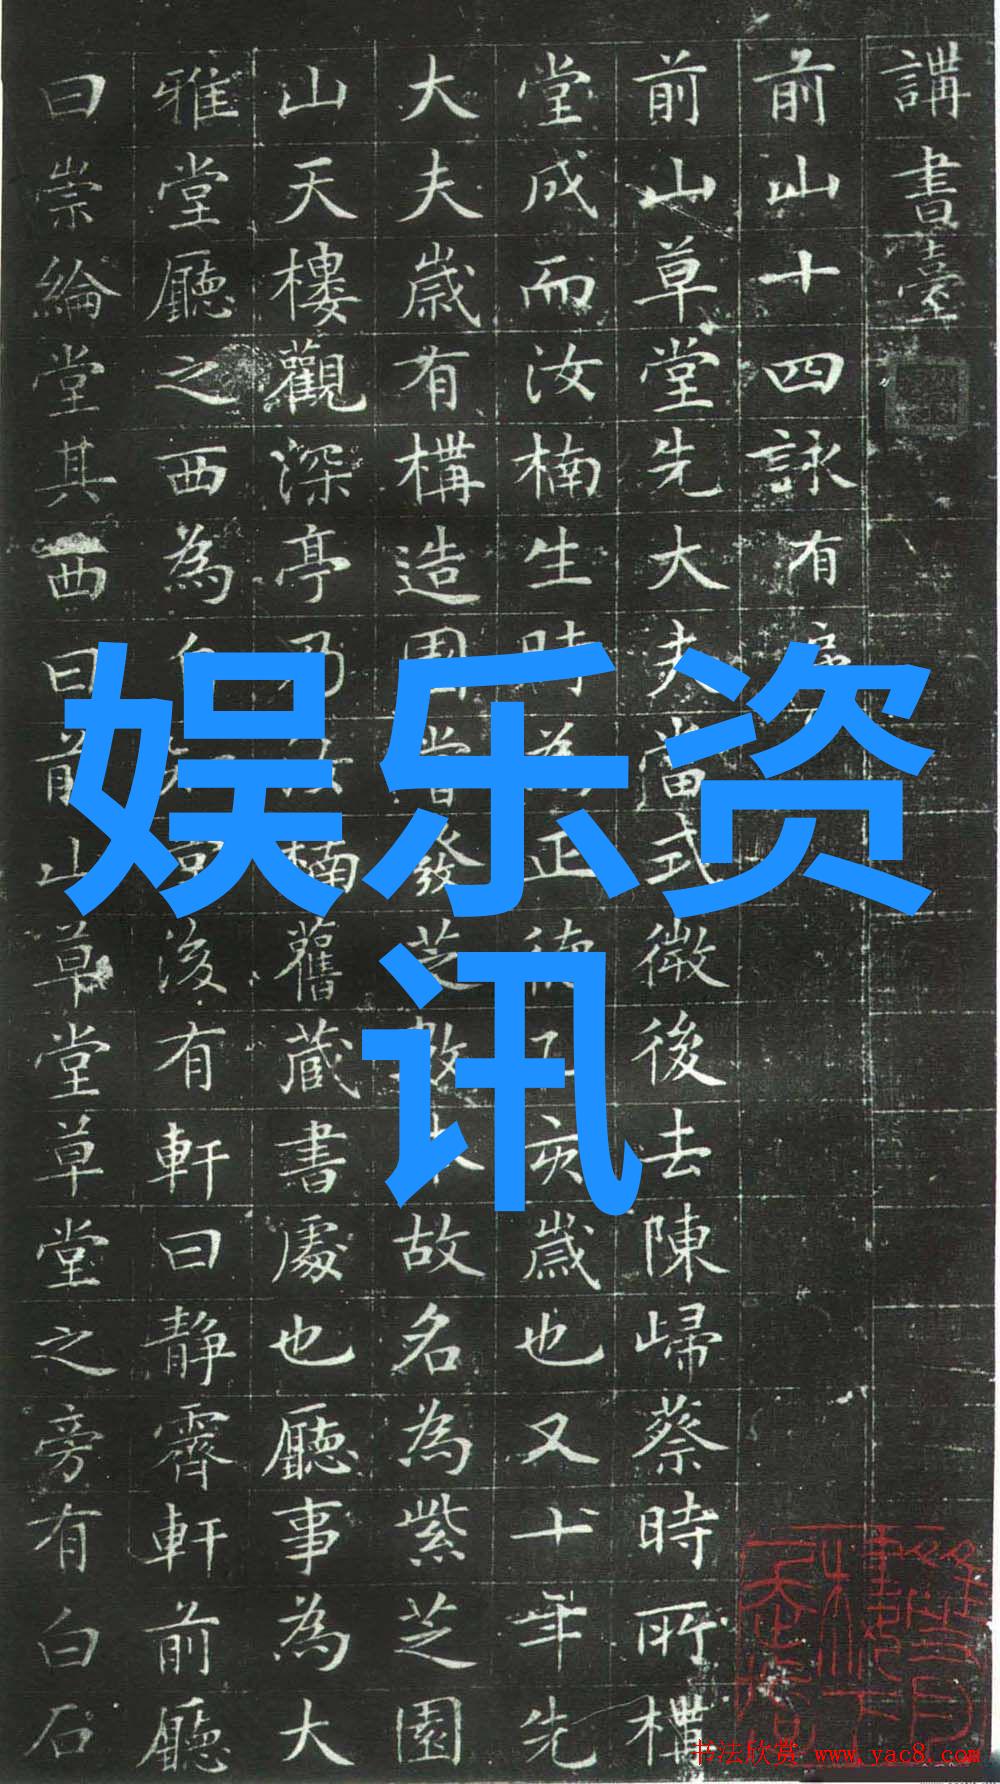 講書臺
前山十四詠有
前山草堂先大夫當式微後去陳歸蔡時所構
堂成而汝楠生時為正德乙亥歲也又十年先
大夫歲有構造園嘗發芝數本故名為紫芝園
山天樓觀深亭乃汝楠舊藏書處也廳事為大
雅堂廳之西為後有軒曰靜霽軒前廳
曰崇綸堂其西曰前山草堂草堂之旁有白石
娱乐资
讯
书法欣赏 www.yac8.com